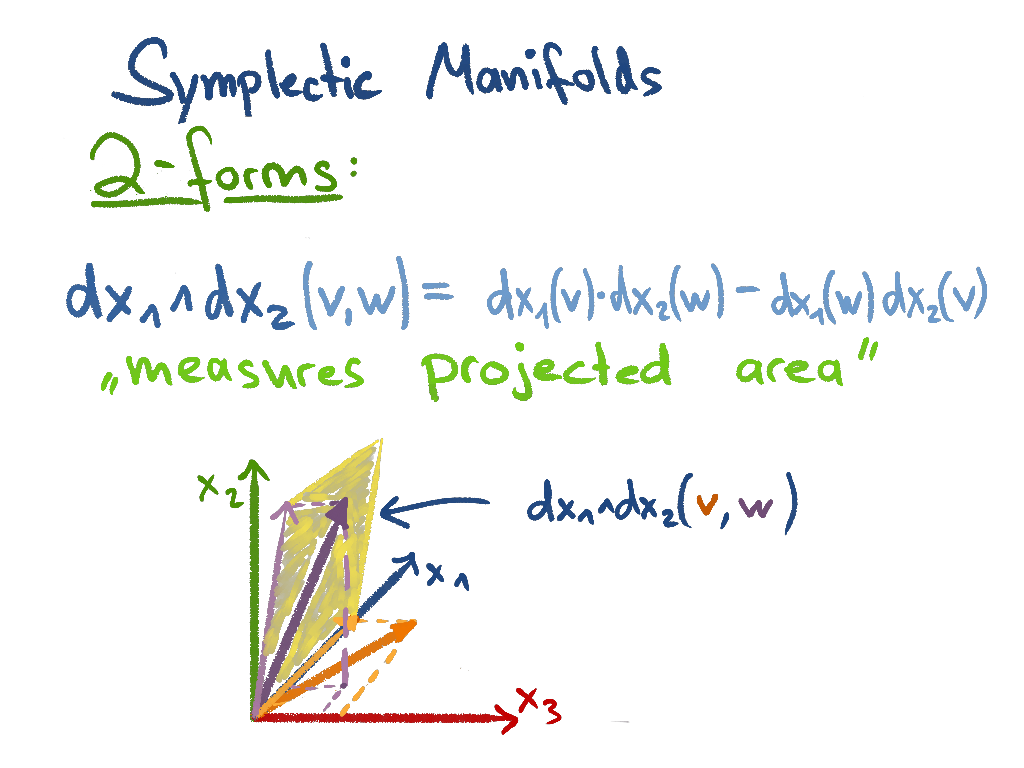 Symplectic Manifolds
2-forms:
dx₁∧dx₂(v,w) = dx₁(v)·dx₂(w) - dx₁(w)dx₂(v)
„measures projected area"
x₂
dx₁∧dx₂(v, w)
x₁
x₃